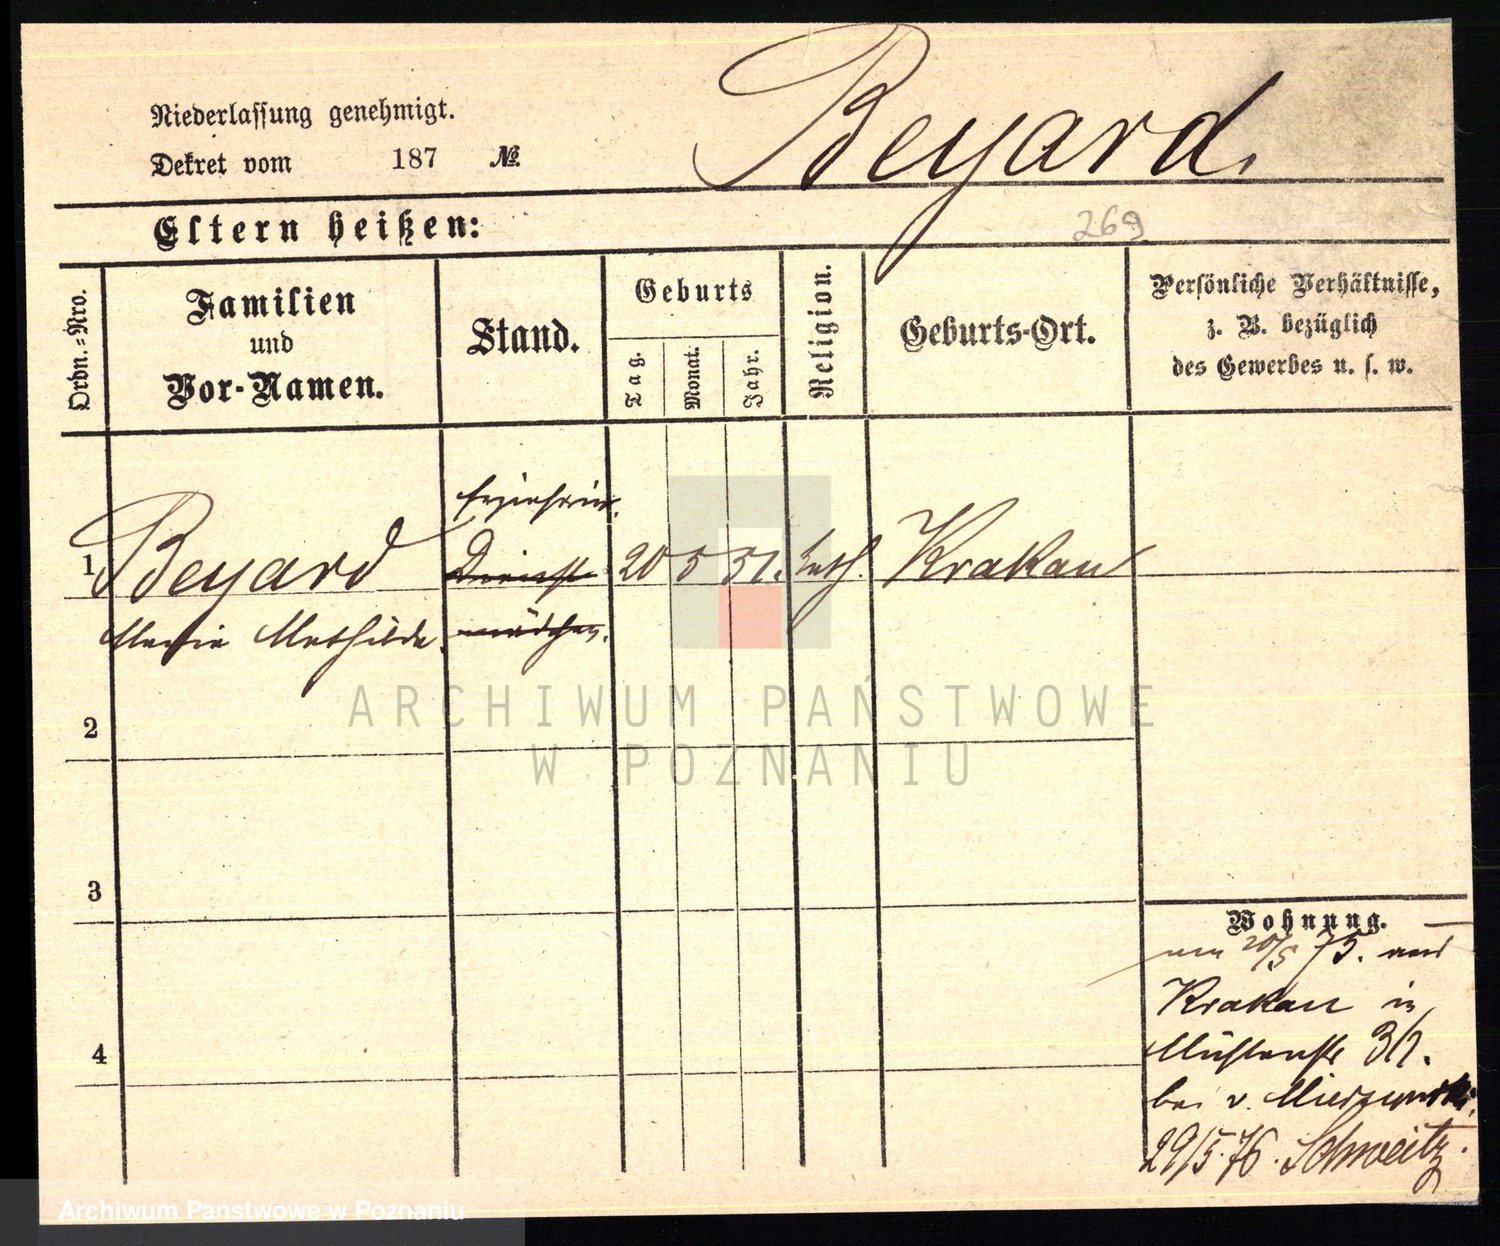 Beyard.
Niederlassung genehmigt.
Dekret vom 187 №
Eltern heißen:
269
Ordn.-Nro.
Familien
und
Vor-Namen.
Stand.
Geburts
Tag.
Monat.
Jahr.
Religion.
Geburts-Ort.
Persönliche Verhältnisse,
z. B. bezüglich
des Gewerbes u. s. w.
Erzieherin.
1 Beyard Dienst- 20 5 51. kath. Krakau
Marie Mathilde. mädchen.
2
3
4
Wohnung.
am 20/5 75. aus
Krakau in
Mühlenstr 3/1.
bei v.
29/5. 76. Schweitz.
ARCHIWUM PAŃSTWOWE
W POZNANIU
Archiwum Państwowe w Poznaniu